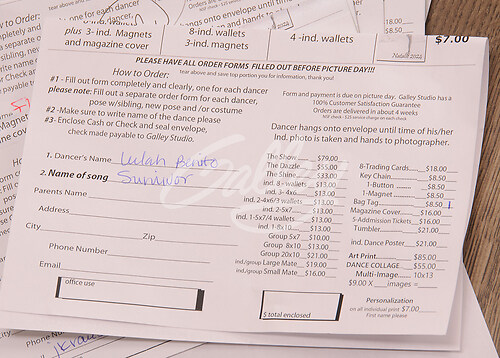 one for each dancer,
plus 3-ind. Magnets
and magazine cover
8-ind. wallets
3-ind. magnets
4-ind. wallets
$7.00
PLEASE HAVE ALL ORDER FORMS FILLED OUT BEFORE PICTURE DAY!!!
How to Order: Tear above and save top portion you for information, thank you!
#1 - Fill out form completely and clearly, one for each dancer
please note: Fill out a separate order form for each dancer,
pose w/sibling, new pose and/or costume
#2 - Make sure to write name of the dance please
#3- Enclose Cash or Check and seal envelope,
check made payable to Galley Studio.
Form and payment is due on picture day. Galley Studio has a
100% Customer Satisfaction Guarantee
Orders are delivered in about 4 weeks
NSF check - $25 service charge on each check
Dancer hangs onto envelope until time of his/her
Ind. photo is taken and hands to photographer.
1. Dancer's Name Lulah Benito
2. Name of song Survivor
Parents Name
Address
City Zip
Phone Number
Email
office use
The Show $79.00
The Dazzle $55.00
The Shine $33.00
ind. 8 - wallets $13.00
ind. 3- 4x6 $13.00
ind. 2-4x6/3 wallets $13.00
ind. 2-5x7 $13.00
ind. 1-5x7/4 wallets $13.00
ind. 1-8x10 $13.00
Group 5x7 $10.00
Group 8x10 $13.00
Group 20x10 $21.00
ind./group Large Mate $19.00
ind./group Small Mate $16.00
$ total enclosed
8-Trading Cards $18.00
Key Chain $8.50
1-Button $8.50
1-Magnet $8.50
Bag Tag $8.50 1
Magazine Cover $16.00
5-Addmission Tickets $16.00
Tumbler $21.00
ind. Dance Poster $21.00
Art Print $85.00
DANCE COLLAGE $55.00
Multi-Image 10x13
$9.00 X images =
Personalization
on all individual print $7.00
First name please
Galley